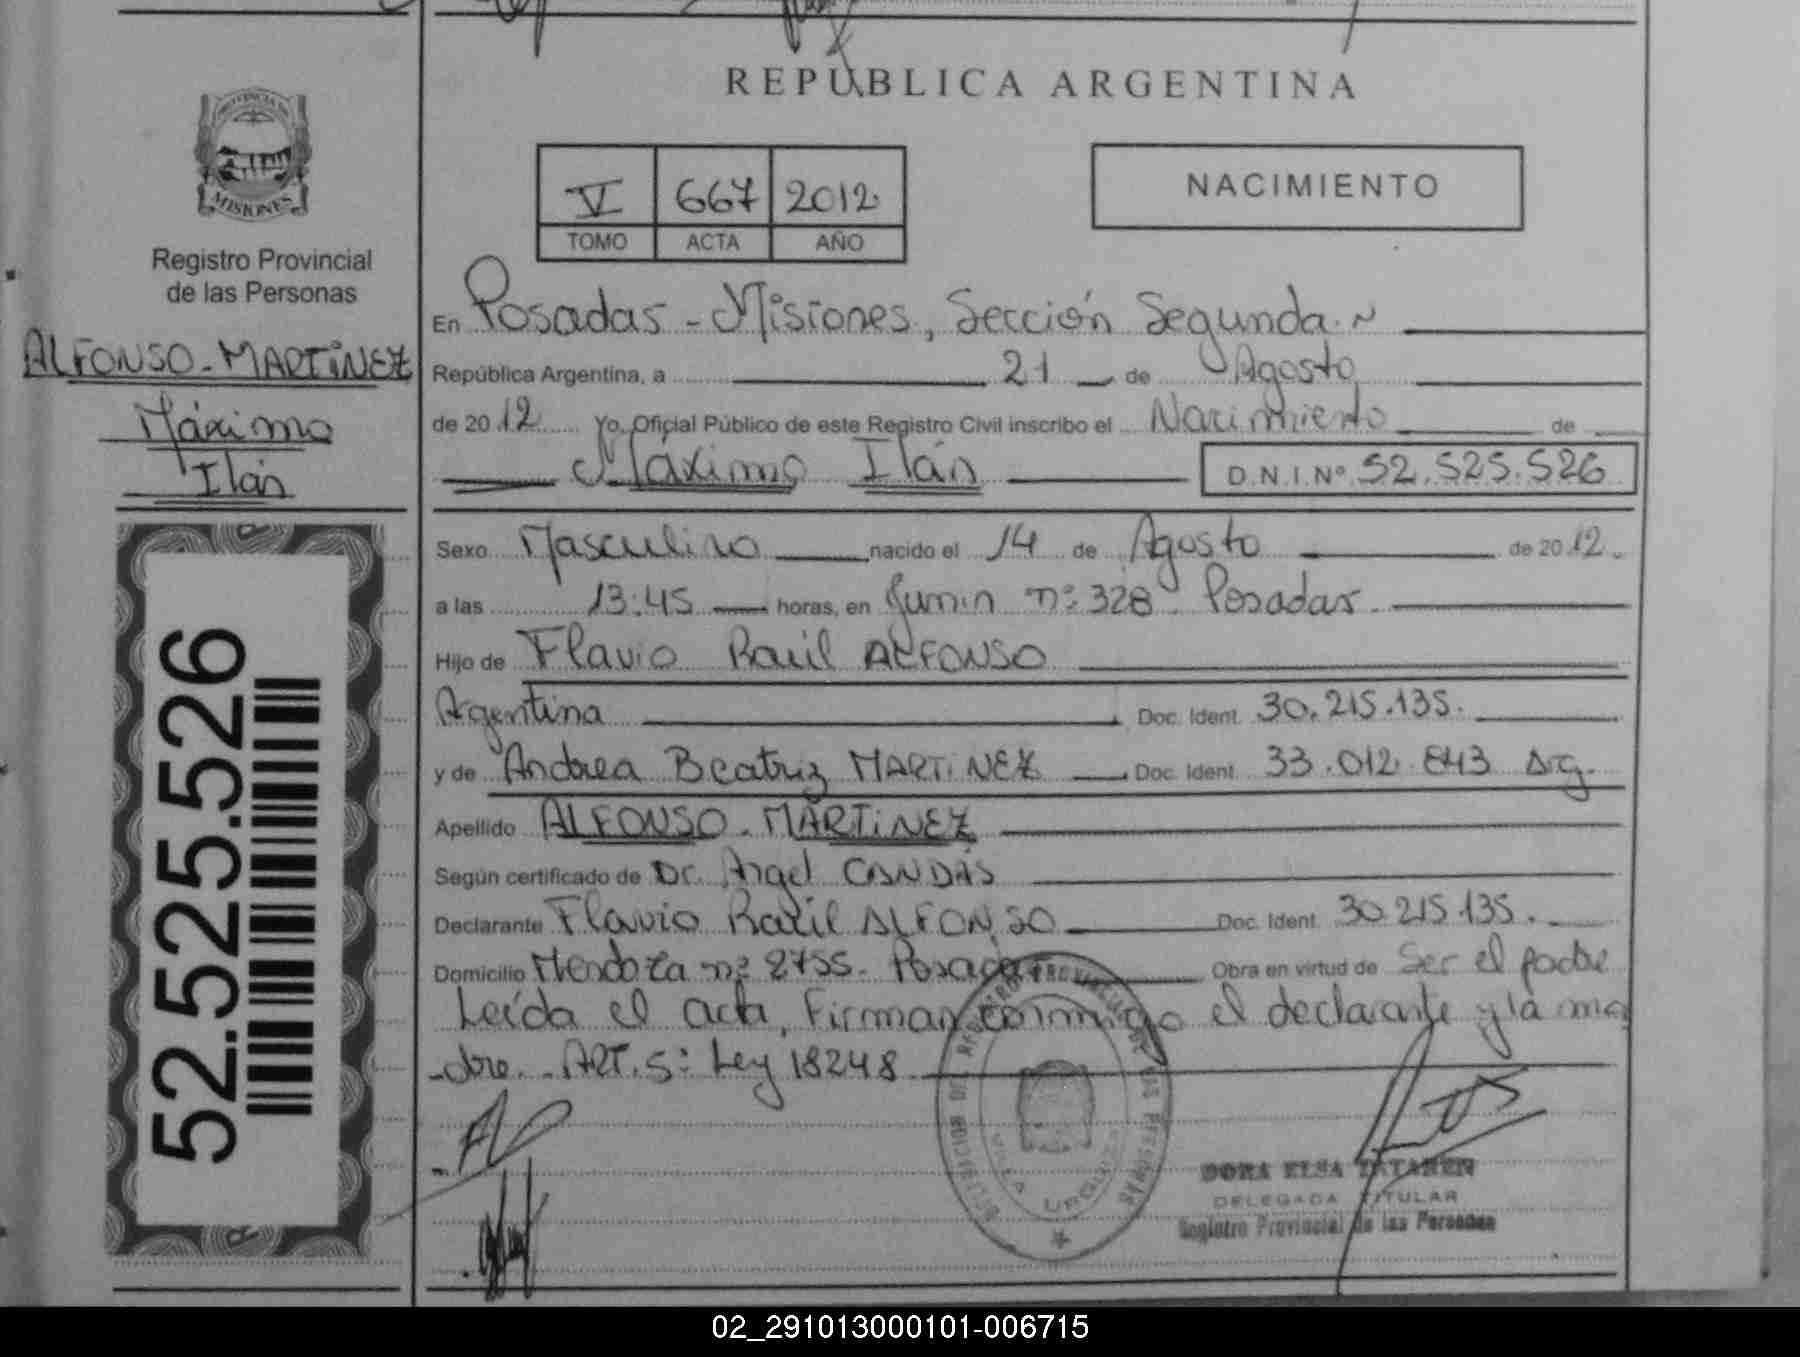 REPÚBLICA ARGENTINA
PROVINCIA DE
MISIONES
Registro Provincial
de las Personas
ALFONSO-MARTINEZ
Máximo
Ilán
52.525.526
V 667 2012
TOMO ACTA AÑO
NACIMIENTO
En Posadas - Misiones, Sección Segunda.
República Argentina, a 21 de Agosto
de 2012 Yo, Oficial Público de este Registro Civil inscribo el Nacimiento de
Máximo Ilán D.N.I.Nº 52.525.526
Sexo Masculino nacido el 14 de Agosto de 2012.
a las 13:45 horas, en Junin nº 328 Posadas.
Hijo de Flavio Raúl ALFONSO
Argentina Doc. Ident. 30.215.135.
y de Andrea Beatriz MARTINEZ Doc. Ident. 33.012.843 Arg.
Apellido ALFONSO-MARTINEZ
Según certificado de Dr. Angel CANDÁS
Declarante Flavio Raúl ALFONSO Doc. Ident. 30.215.135.
Domicilio Mendoza nº 2755. Posadas Obra en virtud de Ser el padre
Leída el acta, Firman conmigo el declarante y la ma
-dre. - ART. 5: Ley 18248
VILLA URQUIZA
DORA ELSA
DELEGADA TITULAR
Registro Provincial de las Personas
02_291013000101-006715